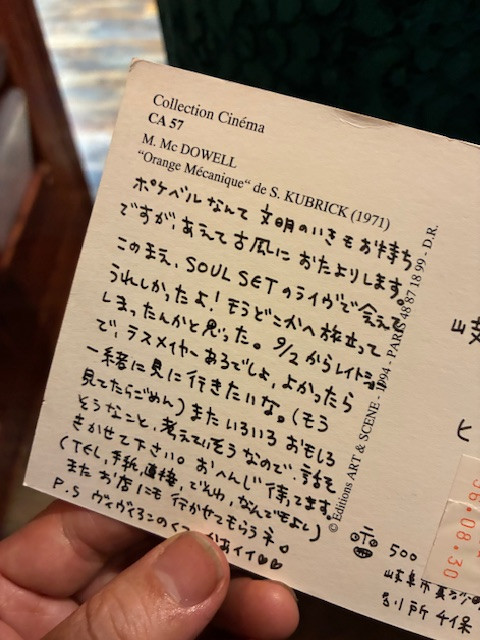 Collection Cinéma
CA 57
M. Mc DOWELL
"Orange Mécanique" de S. KUBRICK (1971)
ポケベルなんて文明のいきもお持ち
ですが、あえて古風におたよりします。
このまえ、SOUL SETのライヴで会えて
うれしかったよ!もうどこかへ旅立って
しまったんかと思った。9/2からレイトショー
で、ラスメイヤーあるでしょ、よかったら
一緒に見に行きたいな。(もう
見てたらごめん)またいろいろおもしろ
そうなこと、考えていそうなので、話を
きかせて下さい。おへんじ待ってます。
(TEL、手紙、直接、でんわ、なんでもよし)
またお店にも行かせてもらうネ。
P.S ヴィヴィアンのくつ、かあイイ♡♡
© Editions ART & SCENE - 1994 - PARIS 48 87 18 90 - D.R.
岐
ヒ
96.08.30
500
岐阜市